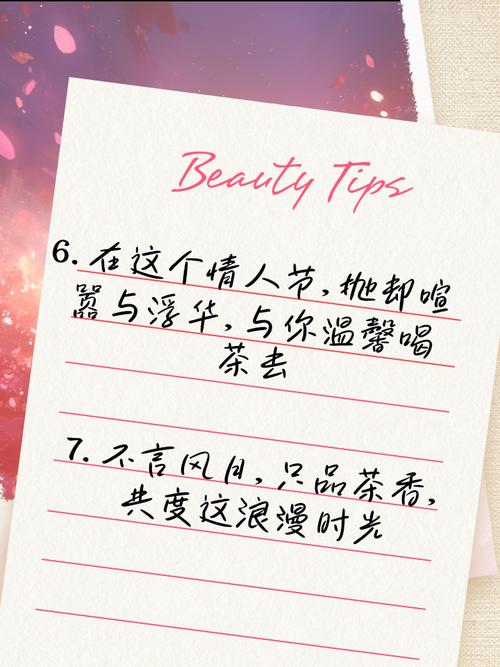 Beauty Tips
6. 在这个情人节,抛却喧
嚣与浮华,与你温馨喝
茶去
7. 不言风月,只品茶香,
共度这浪漫时光